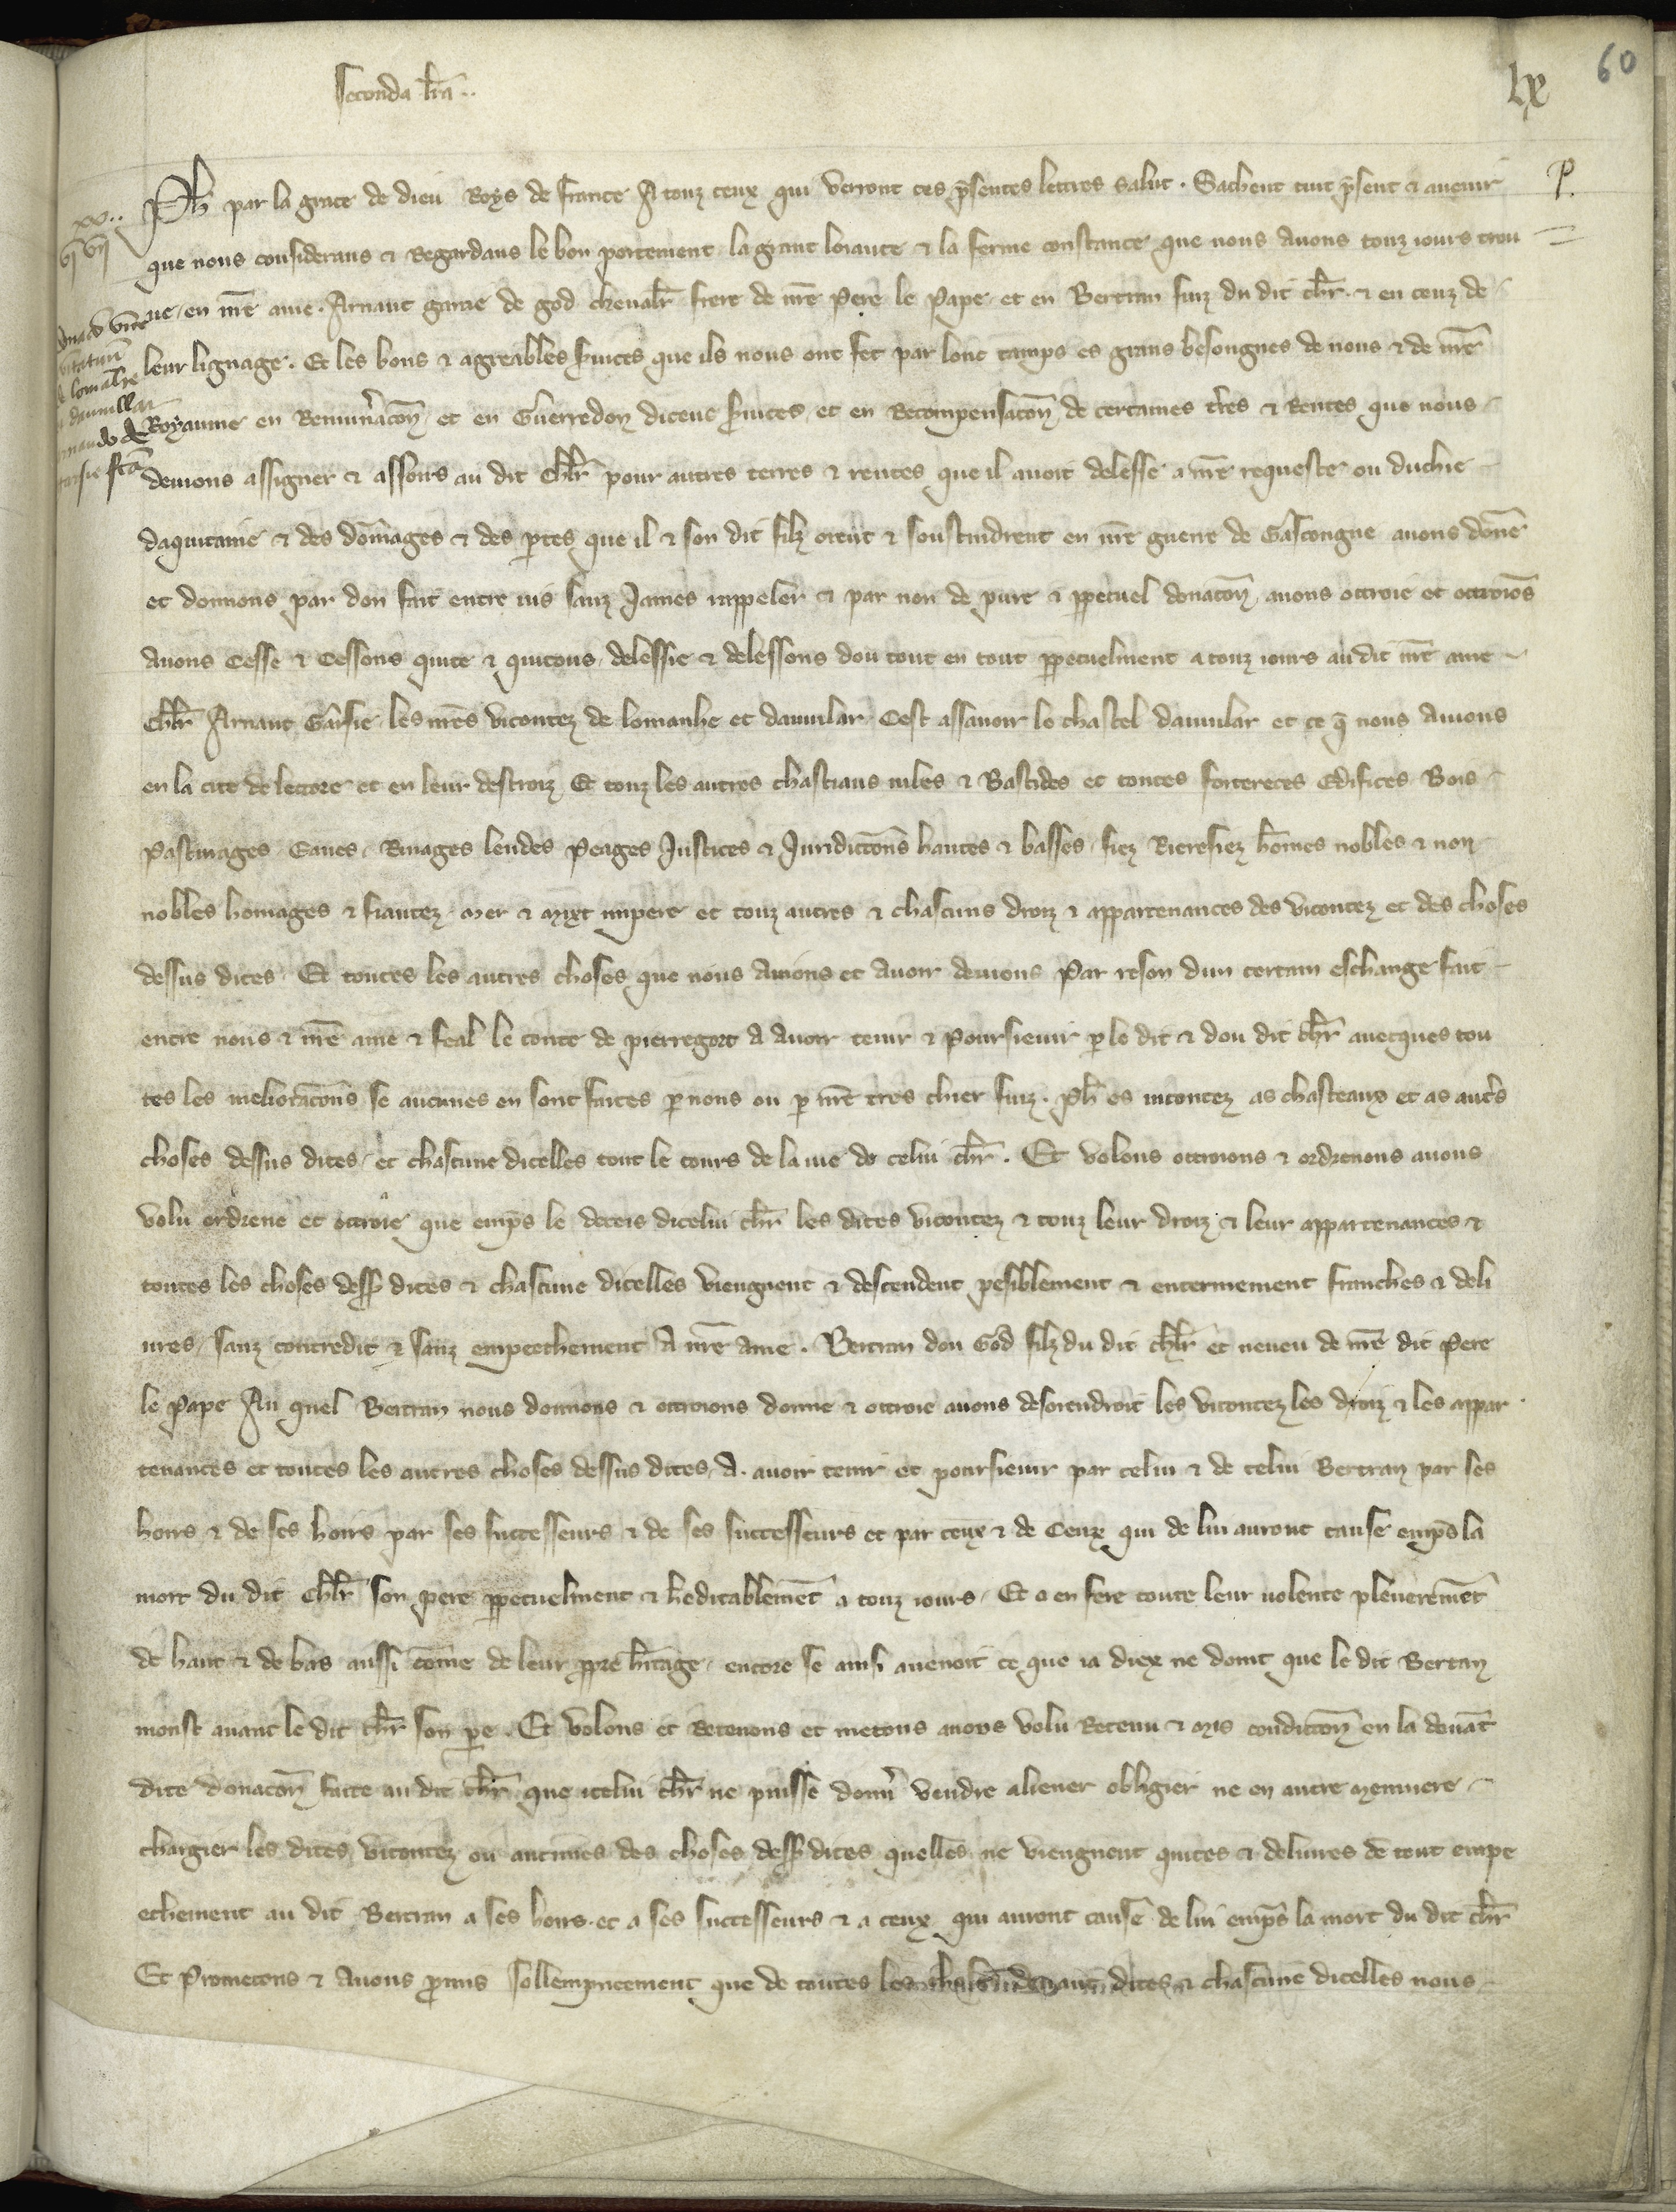 Seconda lr̄a..
lx
60
Ph̄ par la grace de dieu Roys de france A touz ceux qui verront ces p̄sentes lettres salut. Sachent tuit p̄sent & auenir
P.
que nous considerans & Regardans le bon portement la grant loiaute & la ferme constance que nous Auons touz iours trou
ue en nr̄e ame. Arnaut garsie de god cheualr̄ frere de nr̄e Pere le Pape et en Bertran fiuz du dit chr̄. & en ceuz de
leur lignage. Et les bons & agreables seruices que ils nous ont fet par lonc tamps es grans besongnes de nous & de nr̄e
Royaume en Remun̄acōn et en Guerredon diceus seruices et en Recompensacōn de certaines tr̄res & Rentes que nous
deuions assigner & assoirs au dit Chlr̄ pour autres terres & rentes que il auoit delesse a nr̄e requeste ou duchie
daquitaine & des dōmages & des pertes que il & son dit filz orent & soustindrent en nr̄e guerre de Gascongne auons dōne
et donnons par don fait entre uis sanz James rappeler & par non de pure & ꝑpetuel donacōn auons ottroie et ottroiōs
Auons Cesse & Cessons quite & quitons delessie & delessons dou tout en tout ꝑpetuelment a touz iours au dit nr̄e ame
Chlr̄ Arnaut Garsie les nr̄es vicontez de lomanhe et dauuilar Cest assauoir le chastel dauuilar et ce q̄ nous Auions
en la cite de lectore et en leur destroiz Et touz les autres chastiaus uiles & Bastides et toutes fortereces Edifices Bois
Pasturages Eaues Riuages lendes Peages Justices & Juridictōns hautes & basses fiez Rierefiez hōmes nobles & non
nobles homages & fiautez mer & mixt impere et touz autres & chascuns droiz & appartenances des vicontez et des choses
dessus dites Et toutes les autres choses que nous Auions et Auoir deuions Par reson dun certain eschange fait
entre nous & nr̄e ame & feal le conte de pierregort A Auoir tenir & Poursieuir ꝑ le dit & dou dit chr̄ auecques tou
tes les melioracōns se aucunes en sont faites ꝑ nous ou ꝑ nr̄e tres chier fiuz. Ph̄ es uicontez as chasteaux et as autr̄s
choses dessus dites et chascune dicelles tout le cours de la uie de celui chr̄. Et volons ottroions & ordrenons auons
volu ordrene et ottroie que emp̄s le deceis dicelui chr̄ les dites vicontez & touz leur droiz & leur appartenances &
toutes les choses dess̄ dites & chascune dicelles viengnent & descendent pesiblement & enterinement franches & deli
ures sanz contredit & sanz empeechement A nr̄e Ame. Bertran dou God filz du dit chlr̄ et neueu de nr̄e dit Pere
le Pape Au quel Bertran nous donnons & ottroions donne & ottroie auons desorendroit les vicontez les droiz & les appar
tenances et toutes les autres choses dessus dites A. auoir tenir et poursieuir par celui & de celui Bertran par ses
hoirs & de ses hoirs par ses successeurs & de ses successeurs et par ceux & de Ceux qui de lui auront cause emp̄s la
mort du dit Chlr̄ son pere ꝑpetuelment & h̄editablemēt a touz iours Et a en fere toute leur uolente pleneremēt
de haut & de bas aussi cōme de leur ꝓpre h̄itage encore se ainsi auenoit ce que ia diex ne doint que le dit Bertran
morist auant le dit chr̄ son ꝑe. Et volons et Retenons et metons auons volu Retenu & mis condictōn en la deuāt
dite donacōn faite au dit chr̄ que icelui chr̄ ne puisse donn̄ vendre aliener obligier ne en autre meniere
chargier les dites vicontez ou aucunes des choses dess̄ dites quelles ne viengnent quites & deliures de tout empe
echement au dit Bertran a ses hoirs et a ses successeurs & a ceux qui auront cause de lui emp̄s la mort du dit chr̄
Et Prometons & Auons ꝓmis sollempneement que de toutes les dites & chascune dicelles nous